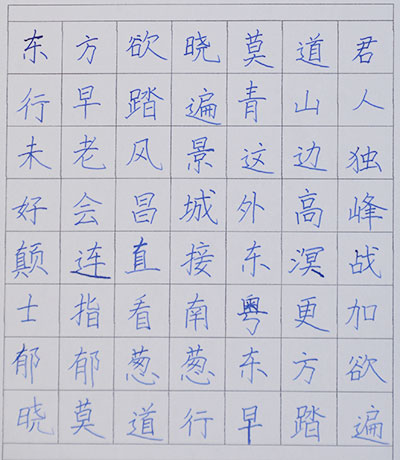 东方欲晓莫道君
行早踏遍青山人
未老风景这边独
好会昌城外高峰
颠连直接东溟战
士指看南粤更加
郁郁葱葱东方欲
晓莫道行早踏遍